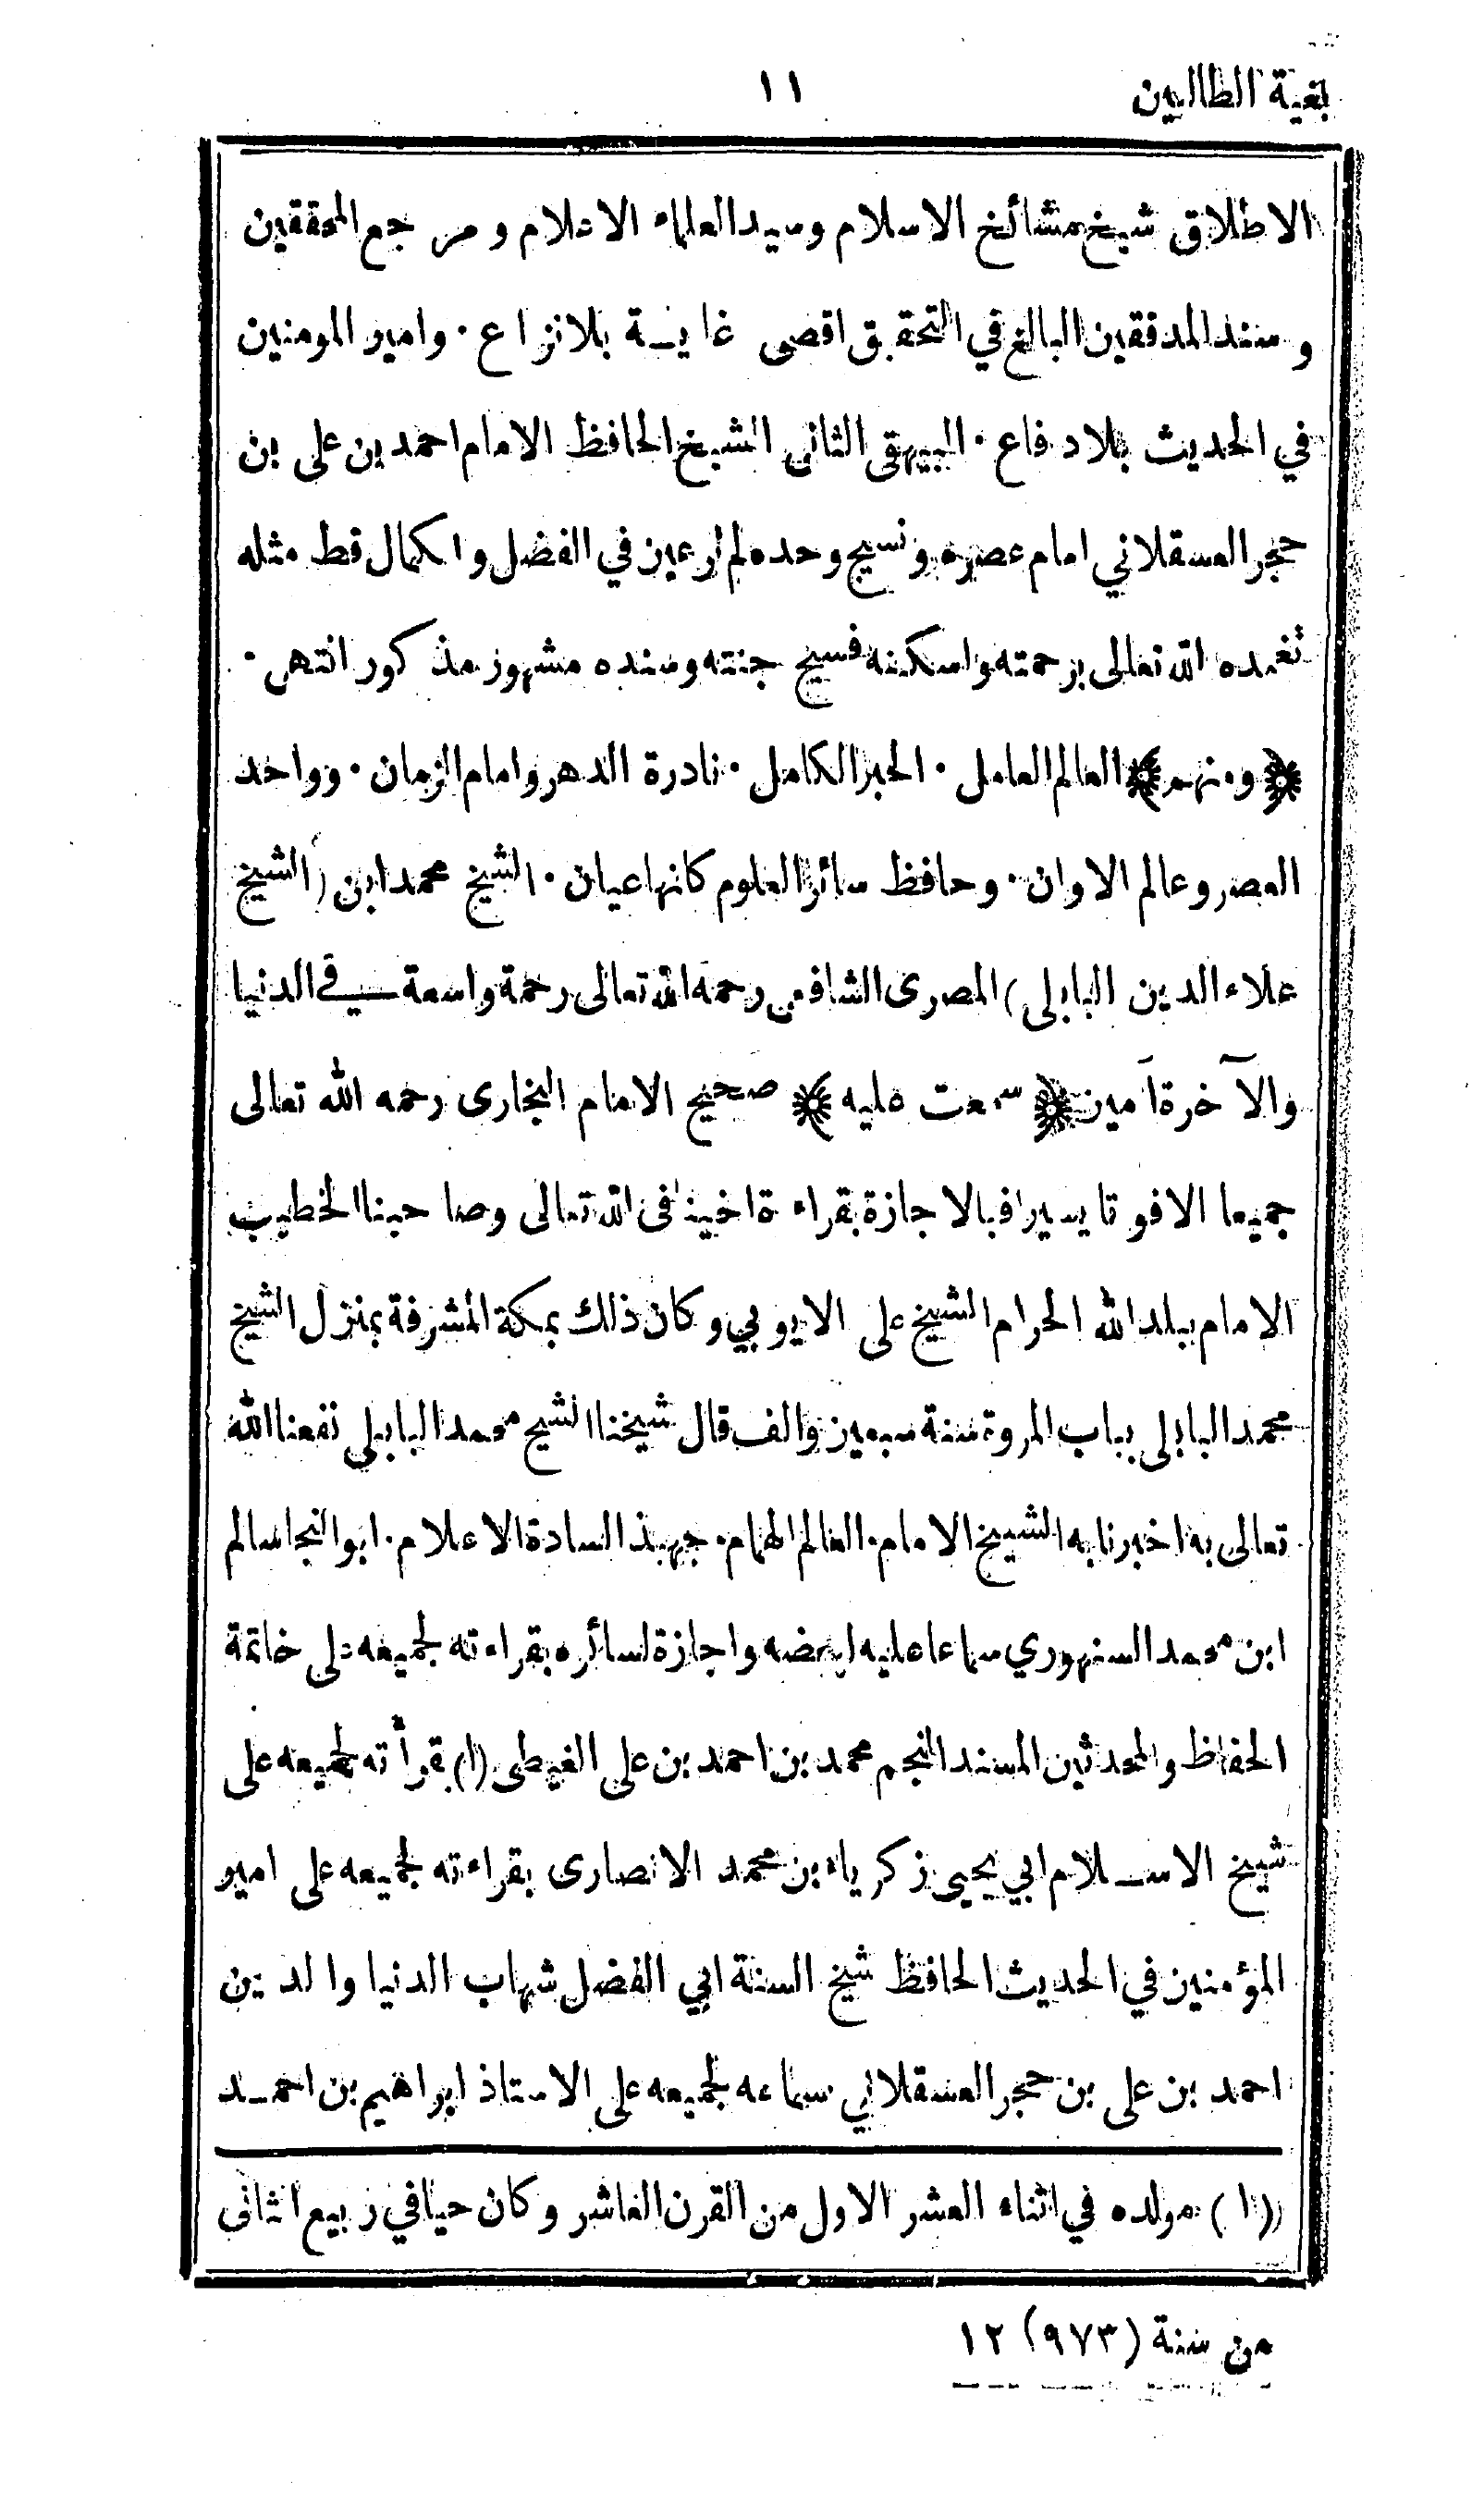 بغية الطالبين
١١
الاطلاق شيخ مشائخ الاسلام وسيد العلماء الاعلام ومرجع المحققين
وسند المدققين البالغ في التحقيق اقصى غاية بلا نزاع . وامير المومنين
في الحديث بلا دفاع . البيهقى الثانى الشيخ الحافظ الامام احمد بن على بن
حجر العسقلاني امام عصره ونسيج وحده لم ار عين في الفضل والكمال قط مثله
تغمده الله تعالى برحمته واسكنه فسيح جنته وسنده مشهور مذكور انتهى .
﴿ ومنهم ﴾ العالم العامل . الحبر الكامل . نادرة الدهر وامام الزمان . وواحد
العصر وعالم الاوان . وحافظ سائر العلوم كانها عيان . الشيخ محمد ابن (الشيخ
علاء الدين البابلى) المصرى الشافعى رحمه الله تعالى رحمة واسعة في الدنيا
والآخرة آمين ﴿ سمعت عليه ﴾ صحيح الامام البخارى رحمه الله تعالى
جميعا الافوتا يسيرا فبالاجازة بقراءة اخينا فى الله تعالى وصاحبنا الخطيب
الامام ببلد الله الحرام الشيخ على الايوبي وكان ذلك بمكة المشرفة بمنزل الشيخ
محمد البابلى بباب المروة سنة سبعين والف قال شيخنا الشيخ محمد البابلى نفعنا الله
تعالى به اخبرنا به الشيخ الامام . العالم الهمام . جهبذ السادة الاعلام . ابو النجا سالم
ابن محمد السنهوري سماعا عليه لبعضه واجازة لسائره بقراءته لجميعه على خاتمة
الحفاظ والمحدثين المسند النجم محمد بن احمد بن على الغيطى (١) بقرأته لجميعه على
شيخ الاسلام ابي يحيى زكرياء بن محمد الانصارى بقراءته لجميعه على امير
المؤمنين في الحديث الحافظ شيخ السنة ابي الفضل شهاب الدنيا والدين
احمد بن على بن حجر العسقلاني سماعه لجميعه على الاستاذ ابراهيم بن احمد
(١) مولده في اثناء العشر الاول من القرن العاشر وكان حيا في ربيع الثانى
من سنة (٩٧٣) ١٢